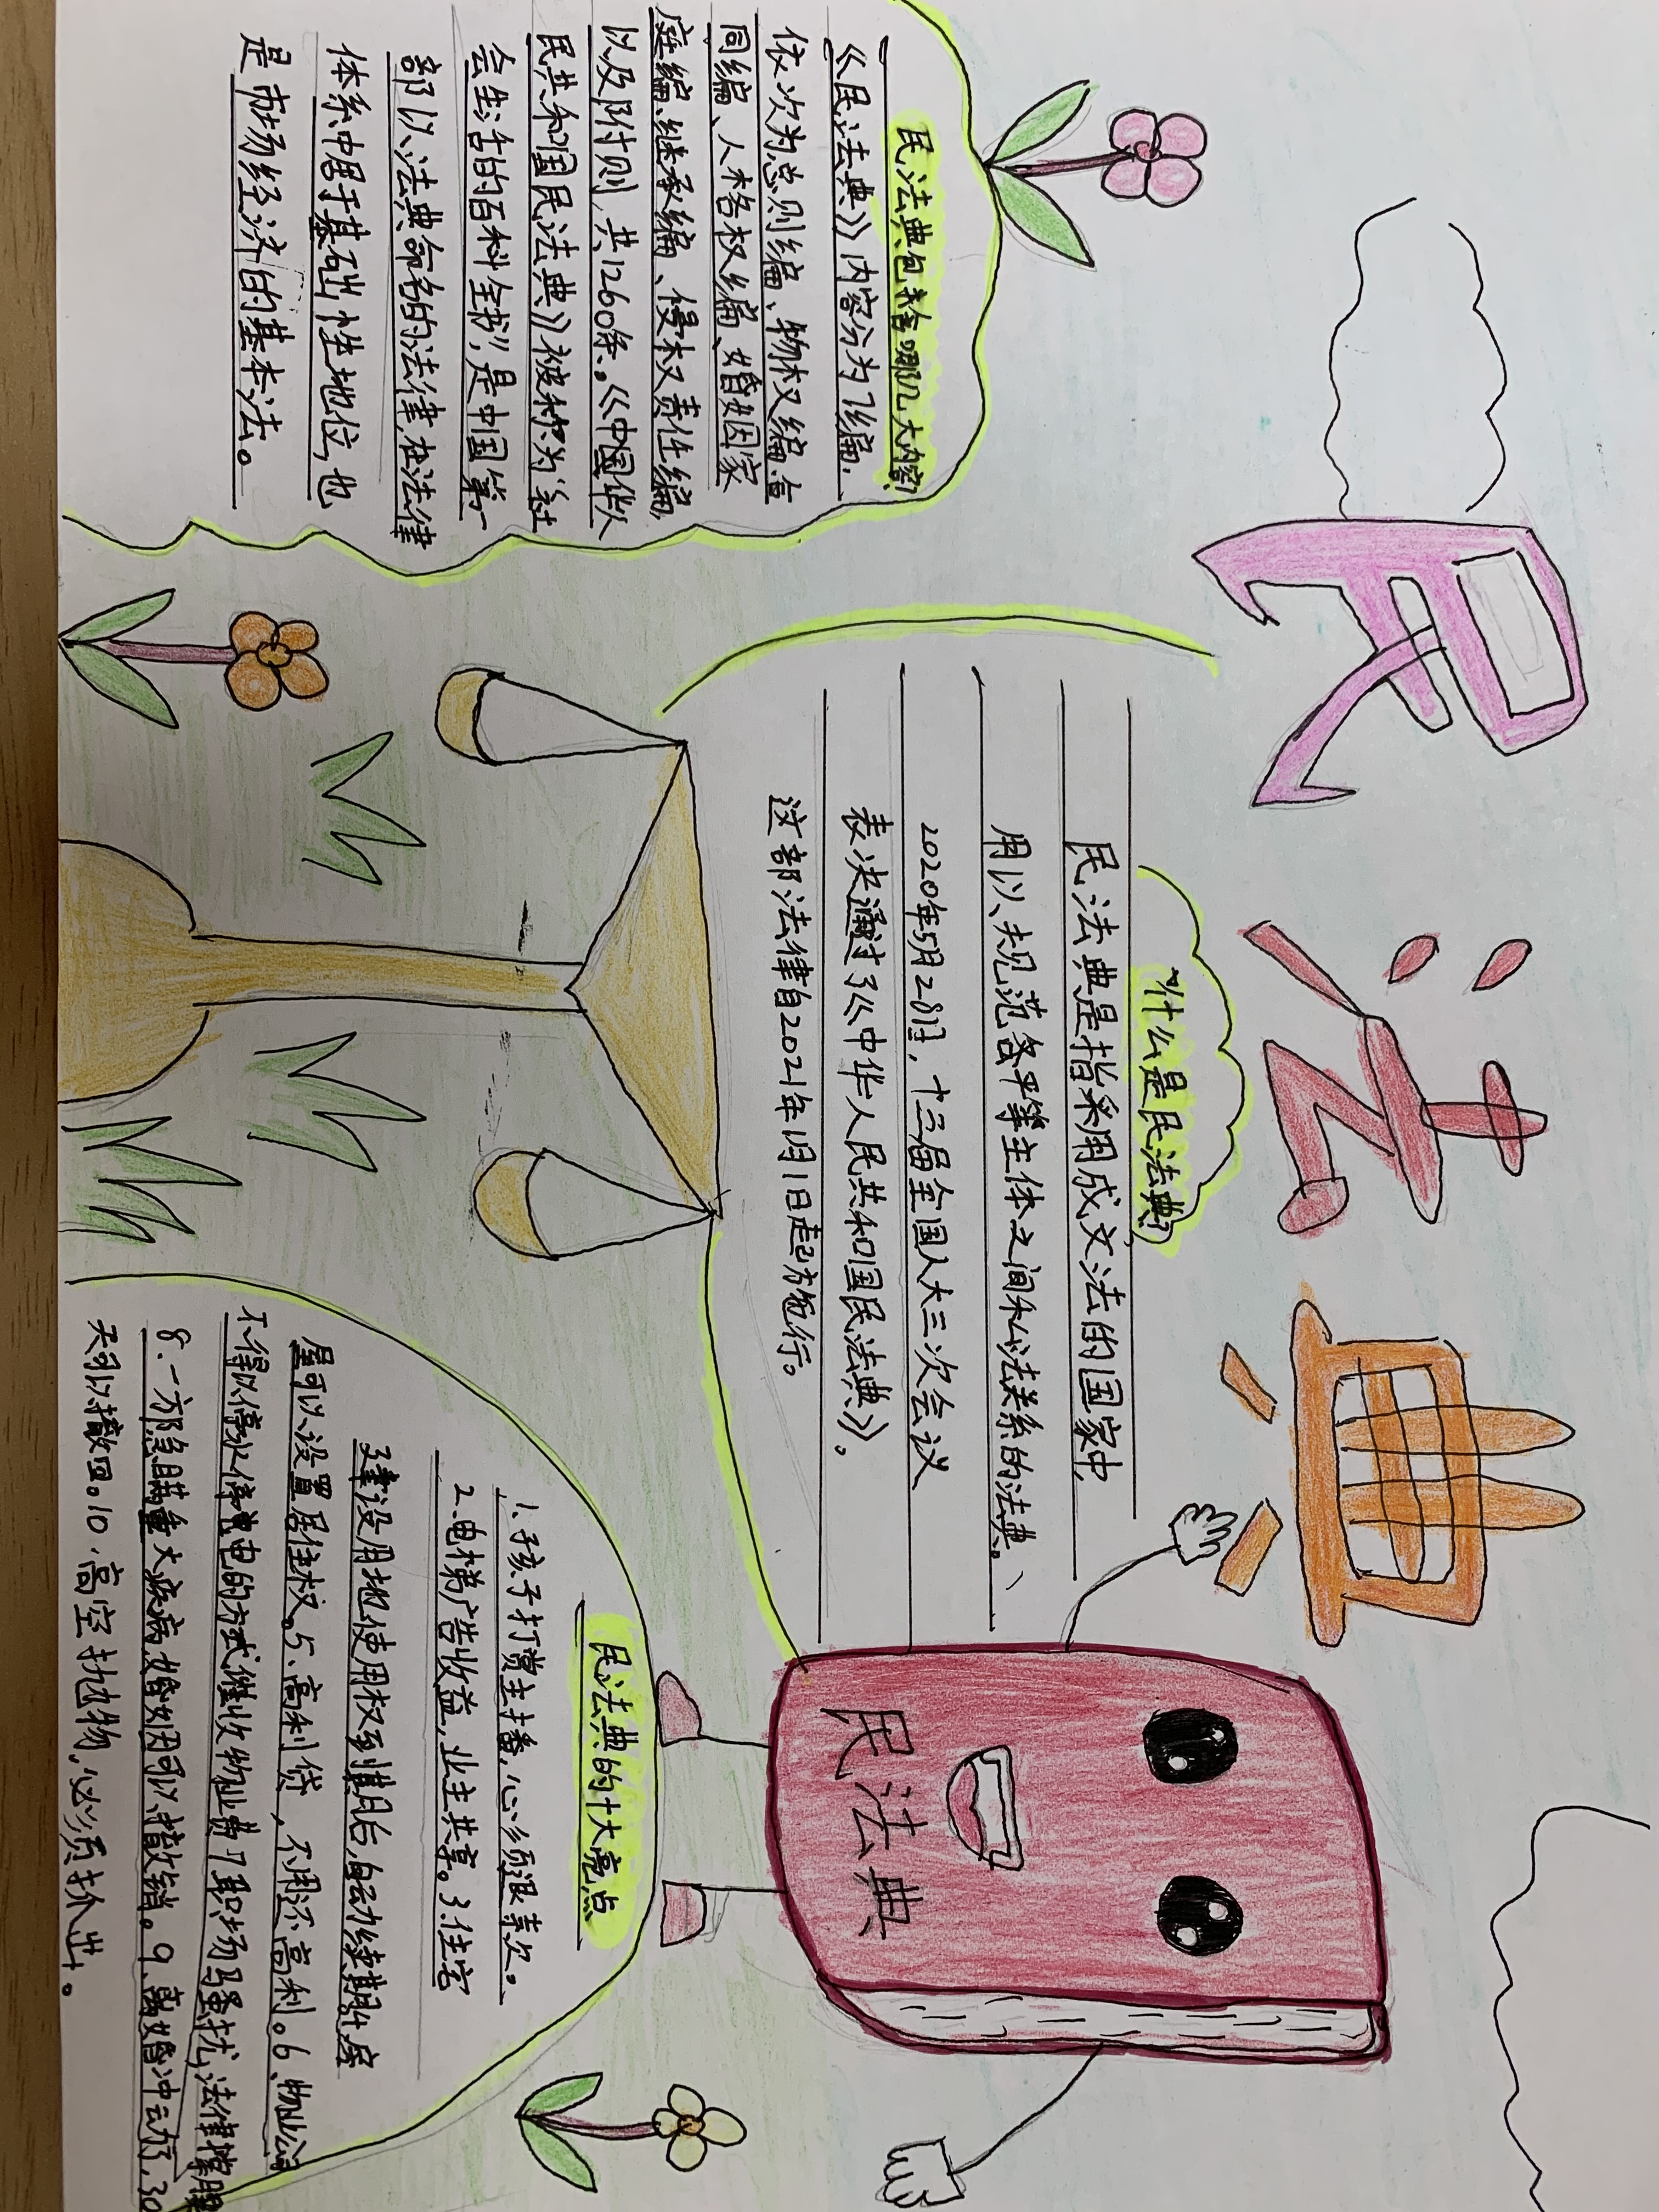 民法典
民法典包含哪几大内容?
《民法典》内容分为7编,
依次为总则编、物权编、合
同编、人格权编、婚姻家
庭编、继承编、侵权责任编,
以及附则,共1260条。《中国华人
民共和国民法典》被称为“社
会生活的百科全书”,是中国第一
部以法典命名的法律,在法律
体系中居于基础性地位,也
是市场经济的基本法。
什么是民法典?
民法典是指采用成文法的国家中,
用以规范各平等主体之间私法关系的法典。
2020年5月28日,十三届全国人大三次会议
表决通过了《中华人民共和国民法典》,
这部法律自2021年1月1日起方施行。
民法典
民法典的十大亮点
1.孩子打赏主播,必须退素次。
2.电梯广告收益,业主共享。3.住宅
建设用地使用权到其月后,自动续期。4.房
屋可以设置居住权。5、高利贷,不用还高利。6、物业公司
不得以停水停电的方式催收物业费7职场马蚤扰,法律撑腰
8.一方隐瞒重大疾病,婚姻可以撤销。9、离婚冲动了,30
天可以撤回。10.高空抛物,必须抓出。